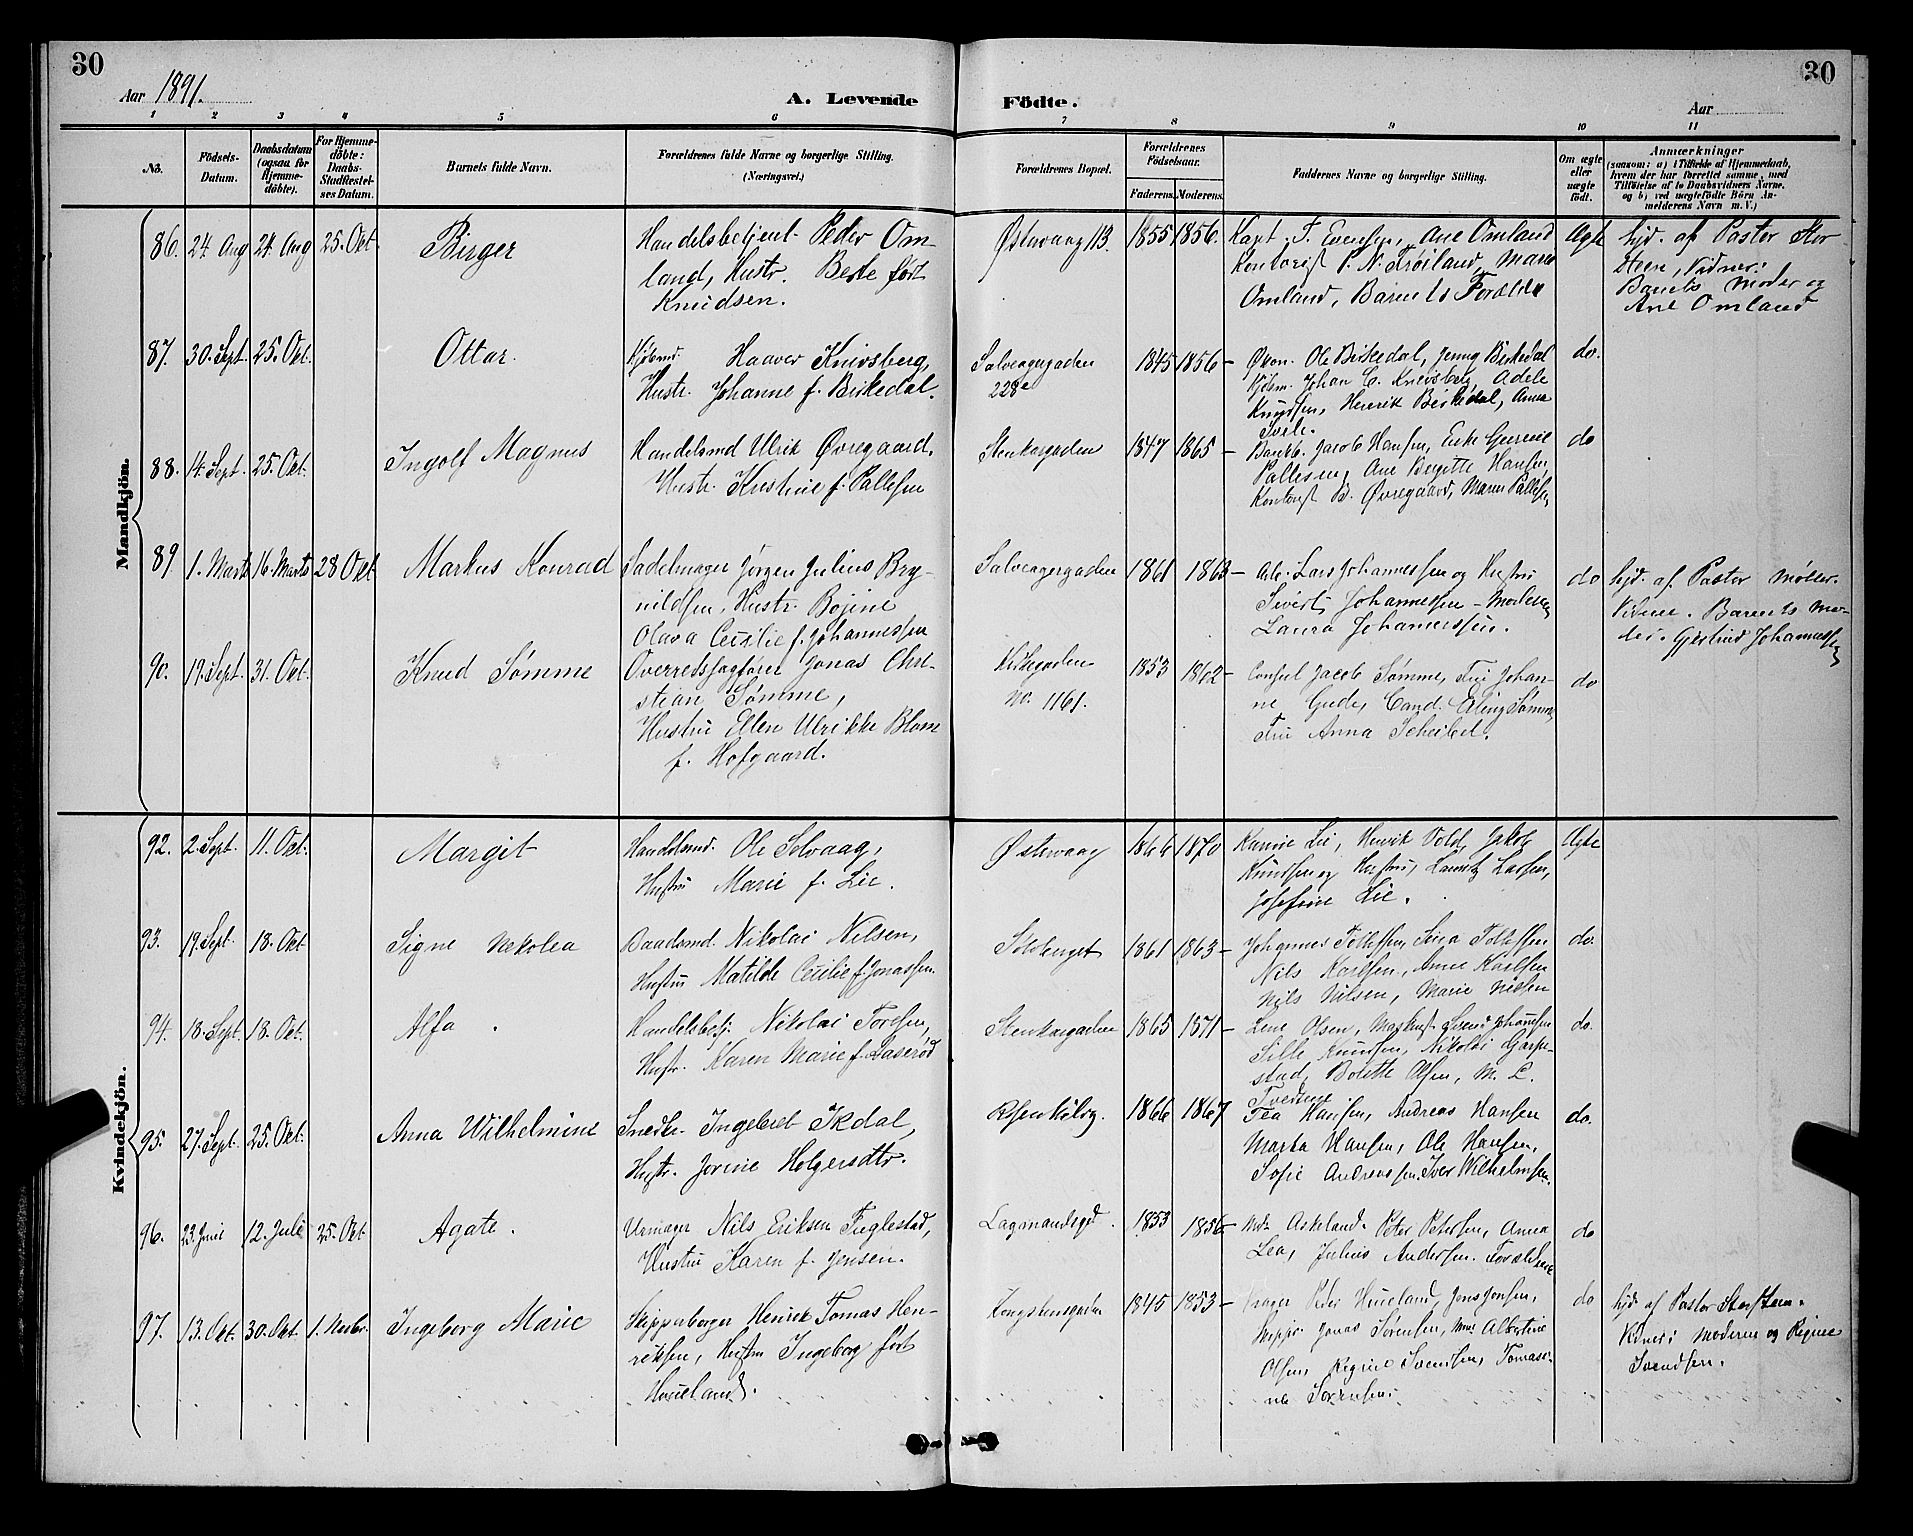 30
30
Aar 1891.
A. Levende
Födte.
Aar
1 2 3 4 5 6 7 8 9 10 11
No.
Födsels-Datum.
Daabsdatum (ogsaa for Hjemme-döbte).
For Hjemme-döbte: Daabs-Stadfæstel-ses Datum.
Barnets fulde Navn.
Forældrenes fulde Navne og borgerlige Stilling. (Næringsvei.)
Forældrenes Bopæl.
Forældrenes Födselsaar.
Faderens. Moderens.
Faddernes Navne og borgerlige Stilling.
Om ægte eller uægte födt.
Anmærkninger
(saasom: a) i Tilfælde af Hjemmedaab, hvem der har forrettet samme, med Tilföielse af to Daabsvidners Navne, og b) ved uægtefödte Börn An-melderens Navn m. V.)
Mandkjön.
86. 24 Aug 24 Aug 25. Okt Birger
Handelsbetjent Peder Om-
land, Hustr. Berte født
Knudsen.
Østervaag 113. 1855 1856.
Kapt. T. Evensen, Ane Omland
Kontorist P. N. Trøiland, Marie
Omland, Barnets Forældre
Ægte
hjd. af Pastor Stor
Steen, Vidner:
Barnets Moder og
Ane Omland
87. 30. Sept. 25. Okt. Ottar.
Kjøbmd. Haaver Knivsberg,
Hustr. Johanne f. Birkedal.
Salvagergaden
228e
1845 1856
Ole Birkedal, Jenny Birkedal
Kjøbm. Johan C. Knivsberg, Adele
Knudsen, Henrik Birkedal, Anna
do.
88. 14. Sept. 25. Okt. Ingolf Magnus
Handelsmd Ulrik Øvregaard,
Hustr. Kristine f. Pallesen
Stenkargaden 1847 1865
Jacob Hansen, Enke
Pallesen, Ane Birgitte Hansen,
Kontorist P. Øvregaard, Maren Pallesen
do
89 1. Marts 16. Marts 28 Okt Markus Konrad
Sadelmager Jørgen Julius Bry-
nildsen, Hustr. Bojine
Olava Cecilie f. Johannessen
Salvagergaden 1861 1863
Arb. Lars Johannessen og Hustru
Sivert Johannessen - Moderen
Laura Johannessen.
do
hjd. af Pastor Møller.
Vidner. Barnets Mo-
der. Gjertrud Johannessen
90. 19. Sept. 31. Okt. Knud Sømme
Overretssagfører Jonas Chri-
stian Sømme,
Hustru Ellen Ulrikke Blom
f. Hofgaard.
Kirkegaden
No. 1161.
1853 1862
Consul Jacob Sømme, Fru Johan-
ne Gude, Cand. Erling Sømme
Fru Anna Scheibel.
do
Kvindekjön.
92. 2. Sept. 11. Okt. Margit
Handelsmd. Ole Selvaag,
Hustru Marie f. Lie.
Østervaag 1866 1870
Lie, Henrik Vold, Jakob
Knudsen og Hustru, Lauritz Larsen,
Josefine Lie.
Ægte
93. 19. Sept. 18. Okt Signe Nikolea
Baadsmd. Nikolai Nilsen,
Hustru Matilde Cecilie f. Jonassen.
1861 1863
Johannes Tollefsen, Sina Tollefsen
Nils Karlsen, Anne Karlsen
Nils Nilsen, Marie Nilsen
do.
94. 18. Sept. 18. Okt. Alfa.
Handelsbetj. Nikolai Torsen,
Hustr. Karen Marie f. Laserød
Stenkargaden 1865 1871
Lene Olsen, Maskinist Svend Johansen
Sille Knudsen, Nikolai Garp-
stad, Bolette Olsen, M. L.
Tvedene
do.
95. 27. Sept. 25. Okt. Anna Wilhelmine
Snedkr. Ingebret Ikdal,
Hustr. Jorine Holgersdtr.
Rosenkilbg. 1866 1867
Tea Hansen, Andreas Hansen
Marta Hansen, Ole Hansen,
Sofie Andreassen. Iver Wilhelmsen.
do.
96. 23. Juni 12. Juli 25. Okt Agate.
Urmager Nils Eriksen Fuglestad,
Hustru Karen f. Jensen.
Lagmandsgd. 1853 1856
Askeland. Peter Petersen, Anna
Lea, Julius Andersen. Forældrene
do
97. 13. Okt. 30. Okt. 1. Novbr. Ingeborg Marie
Skipperborger Henrik Tomas Hen-
riksen, Hustru Ingeborg født
Hueland.
Kongstensgaden 1845 1853
Peder Hueland, Jens Jensen,
Skippr. Jonas Sørensen, Albertine
Olsen, Regine Svendsen, Tomasi-
ne Sørensen.
do
hjd. af Pastor Storsteen.
Vidner: Moderen og Regine
Svendsen.